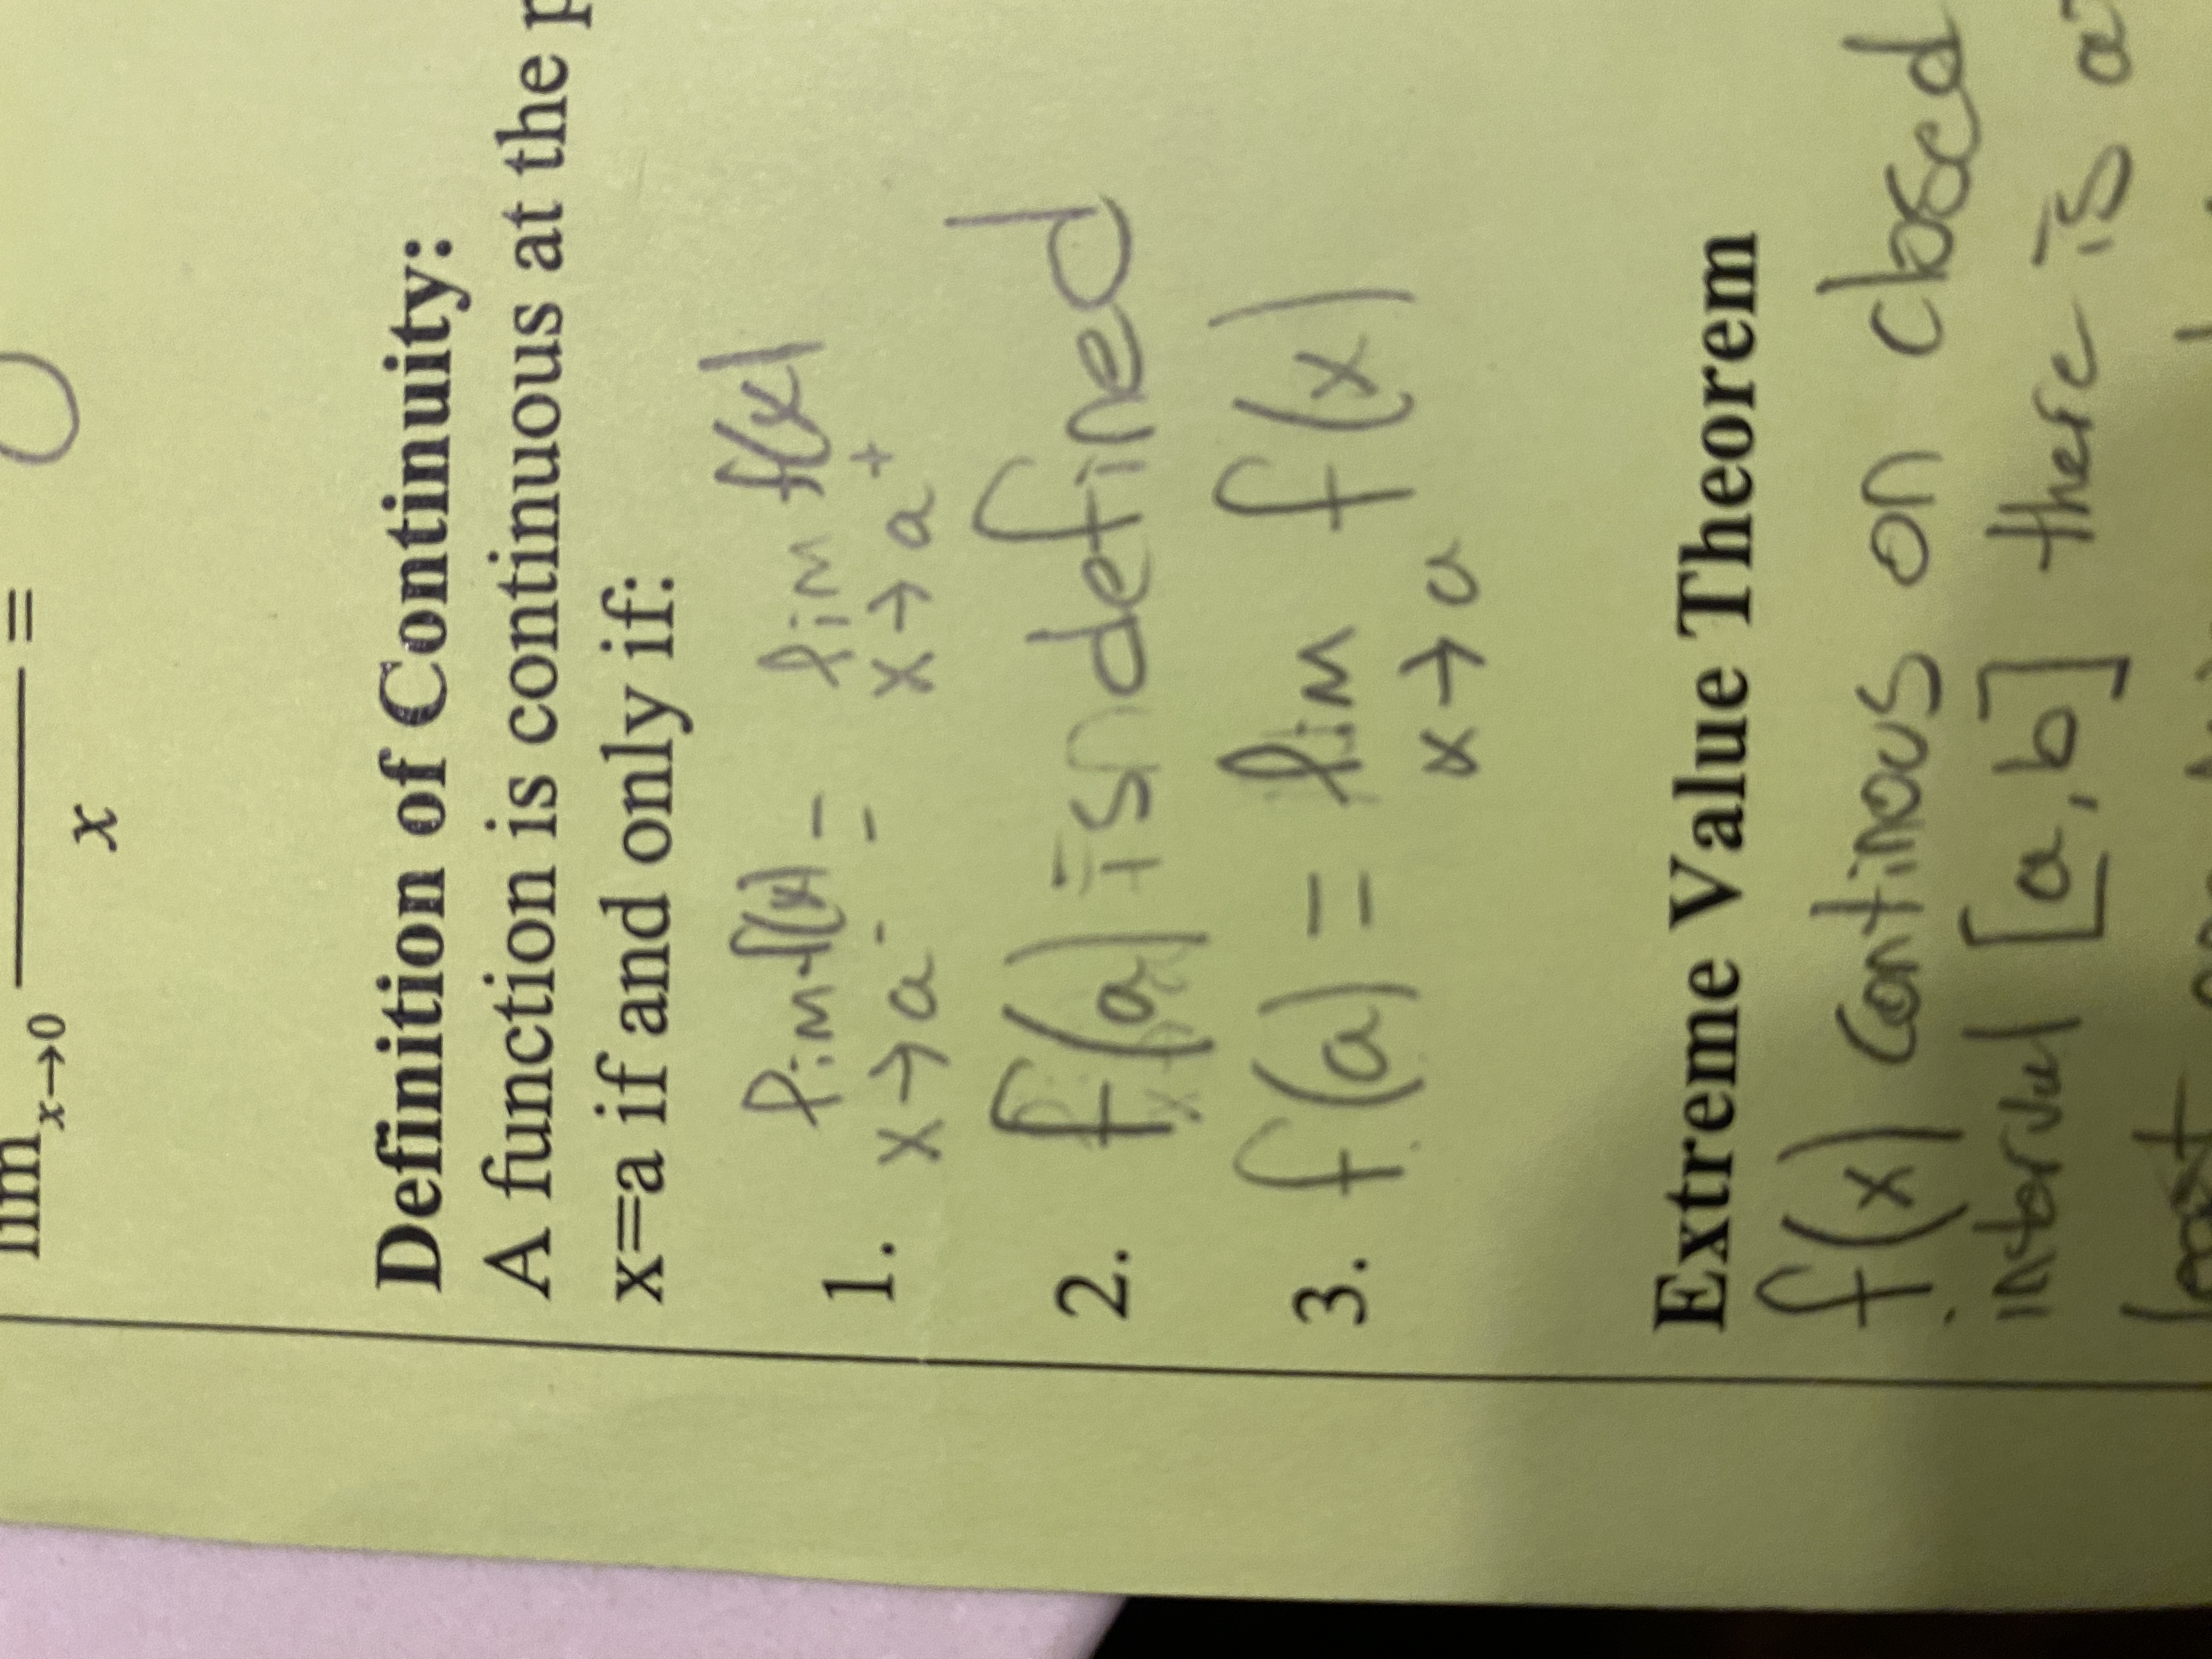 lim x→0 ___ = 0
x
Definition of Continuity:
A function is continuous at the
x=a if and only if:
1. lim f(x) = lim f(x)
x→a⁻ x→a⁺
2. f(a) is defined
3. f(a) = lim f(x)
x→a
Extreme Value Theorem
f(x) continous on closed
interval [a,b] there is at
least one